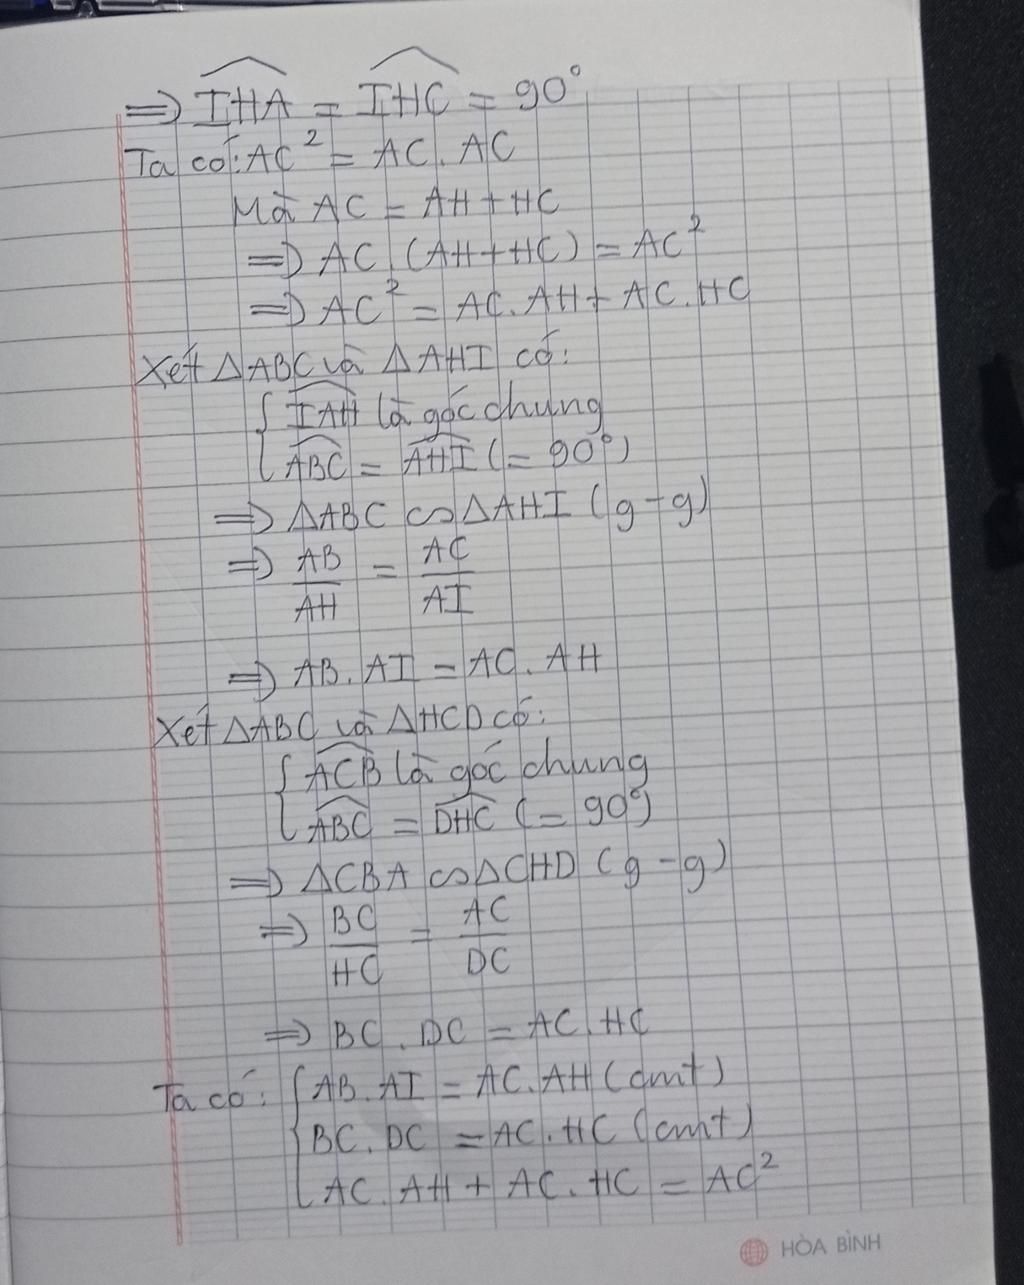 ⇒ IHA = IHC = 90°
Ta có: AC² = AC. AC
Mà AC = AH + HC
⇒ AC. (AH + HC) = AC²
⇒ AC² = AC. AH + AC. HC
Xét △ABC và △AHI có:
{ IAH là góc chung
ABC = AHI (= 90°)
⇒ △ABC ∽ △AHI (g - g)
⇒ AB/AH = AC/AI
⇒ AB. AI = AC. AH
Xét △ABC và △HCD có:
{ ACB là góc chung
ABC = DHC (= 90°)
⇒ △CBA ∽ △CHD (g - g)
⇒ BC/HC = AC/DC
⇒ BC. DC = AC. HC
Ta có: { AB. AI = AC. AH (cmt)
BC. DC = AC. HC (cmt)
AC. AH + AC. HC = AC²
HÒA BÌNH